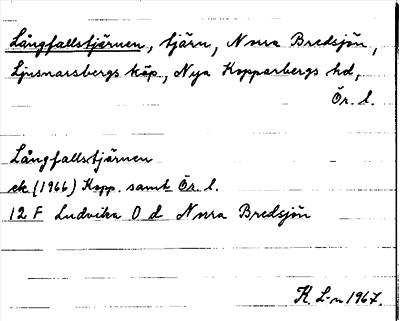 Långfallstjärnen, tjärn, Norra Bredsjön,
Ljusnarsbergs köp., Nya Kopparbergs hd,
Ör. l.
Långfallstjärnen
ek (1966) Kopp. samt Ör. l.
12 F Ludvika O d Norra Bredsjön
K. L-n 1967.